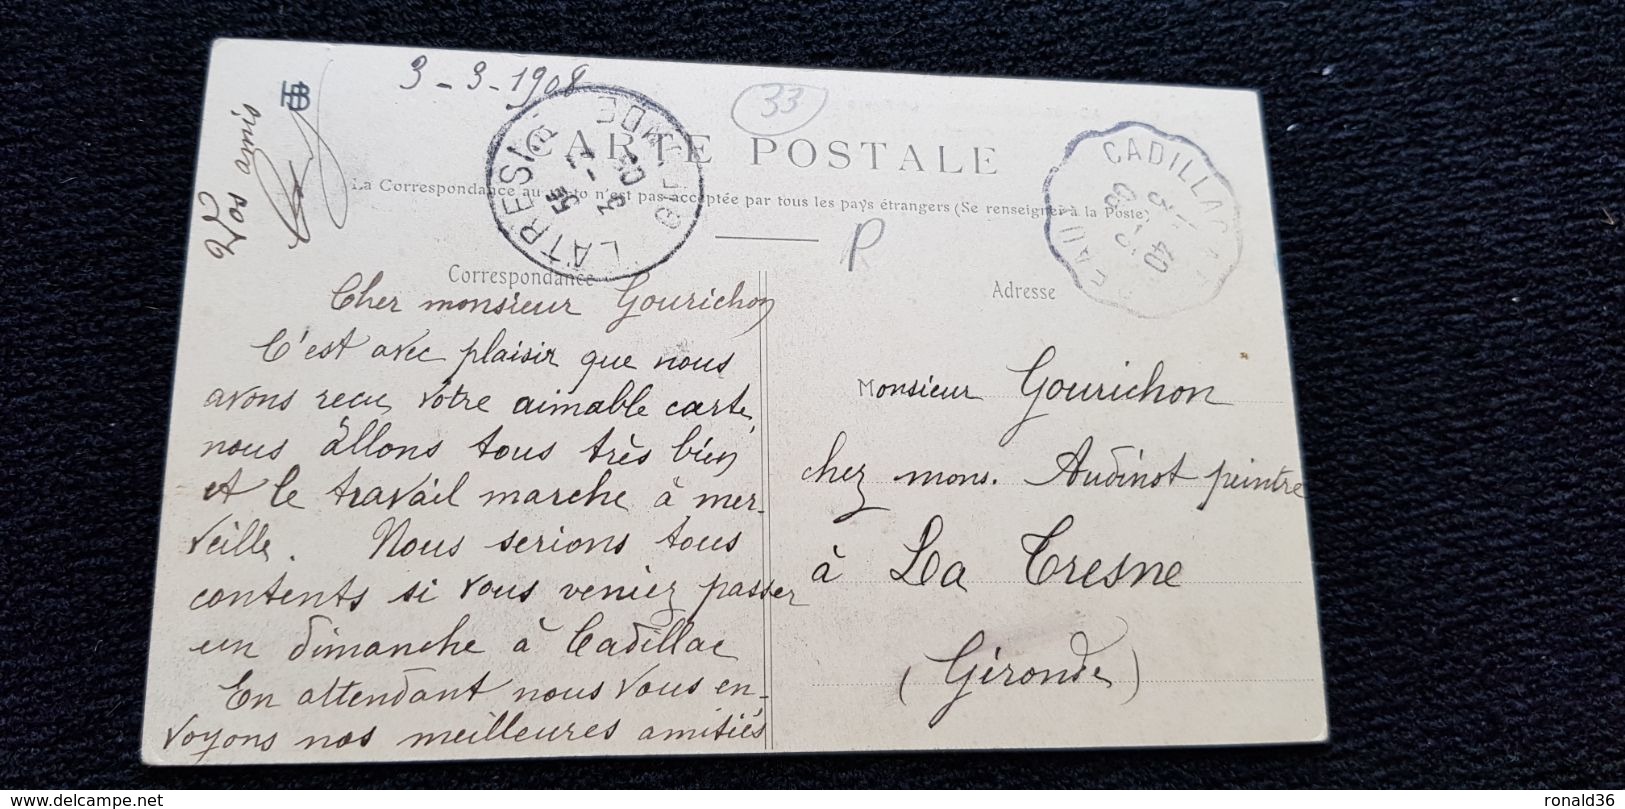 3-3-1908
Vos amis
33
CARTE POSTALE
La Correspondance au recto n'est pas acceptée par tous les pays étrangers (Se renseigner à la Poste)
LATRESNE
GIRONDE
CADILLAC
R
Correspondance
Adresse
Cher monsieur Gourichon
C'est avec plaisir que nous
avons reçu votre aimable carte,
nous allons tous très bien
et le travail marche à mer-
veille. Nous serions tous
contents si vous veniez passer
un dimanche à Cadillac
En attendant nous vous en-
voyons nos meilleures amitiés
Monsieur Gourichon
chez mons. Audinot peintre
à La Tresne
(Gironde)
delcampe.net
ronald36